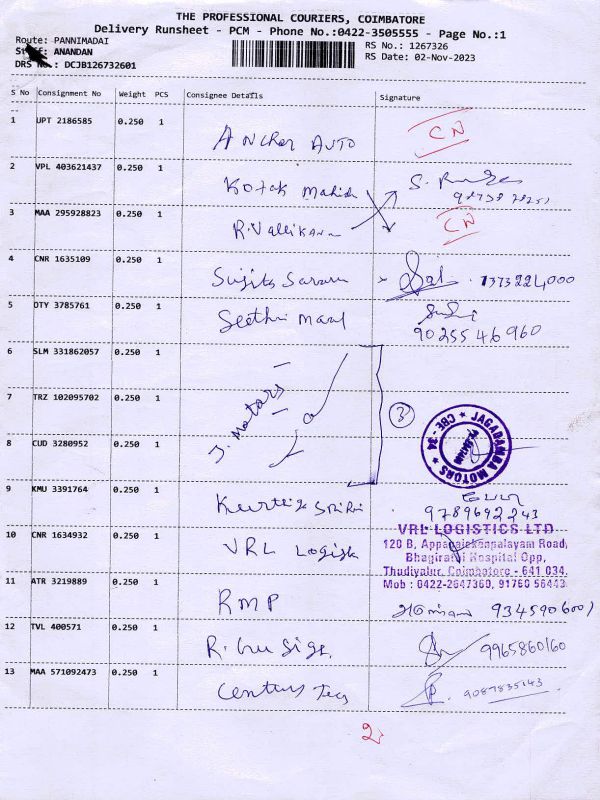 THE PROFESSIONAL COURIERS, COIMBATORE
Delivery Runsheet - PCM - Phone No.:0422-3505555 - Page No.:1
Route: PANNIMADAI
RS No.: 1267326
ANANDAN
RS Date: 02-Nov-2023
DRS No.: DCJB126732601
S No Consignment No Weight PCS Consignee Details Signature
1 UPT 2186585 0.250 1 Ancher Auto CN
2 VPL 403621437 0.250 1 Kotak Mahin S.
3 MAA 295928823 0.250 1 R. Vallikann CN
4 CNR 1635109 0.250 1 Sujits 7373224000
5 DTY 3785761 0.250 1 Seethi
9025546960
6 SLM 331862057 0.250 1
7 TRZ 102095702 0.250 1 J. Motors 3
8 CUD 3280952 0.250 1
JAGADAMBA MOTORS * CBE - 34 *
9 KMU 3391764 0.250 1
9789692243
10 CNR 1634932 0.250 1 VRL Logistk
VRL LOGISTICS LTD
120 B, Road,
Bhagirathi Hospital Opp,
Thudiyalur, Coimbatore - 641 034.
Mob : 0422-2647360, 91760 56443
11 ATR 3219889 0.250 1 RMP 9345906001
12 TVL 400571 0.250 1 R. 9965860160
13 MAA 571092473 0.250 1 Century Teq 9087835143
2